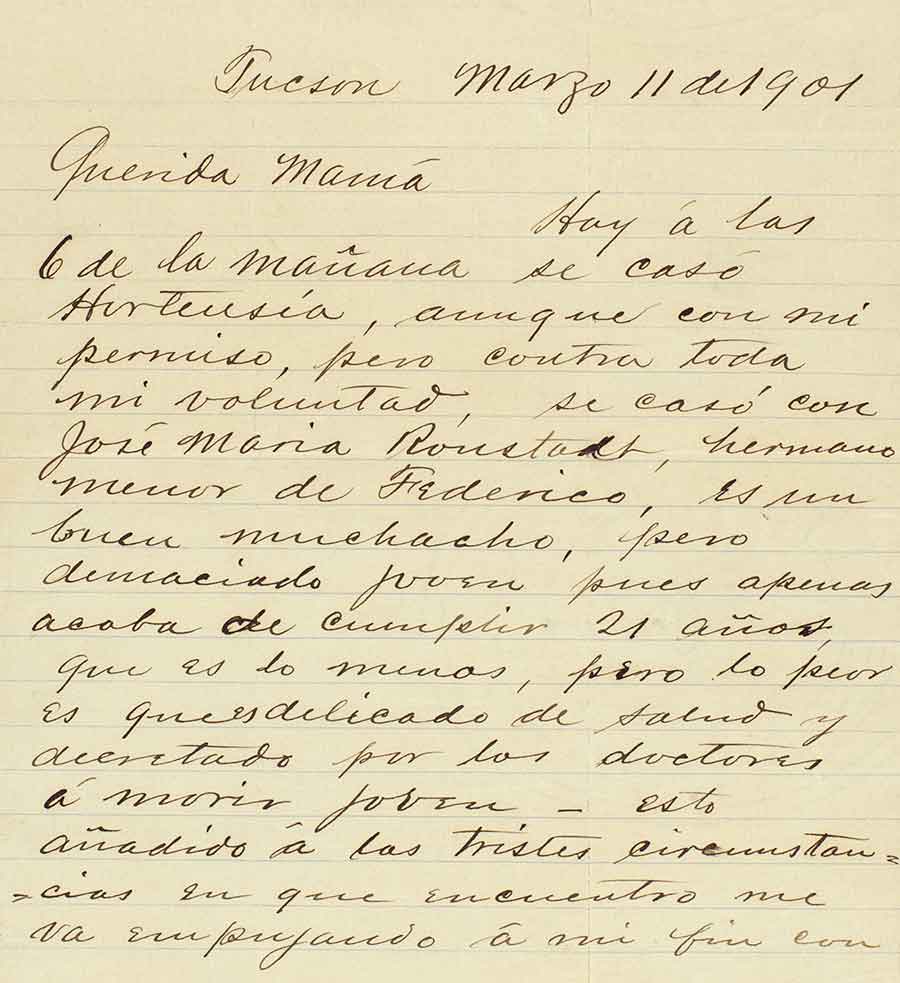 Tucson Marzo 11 de 1901
Querida Mamá
Hoy á las
6 de la mañana se casó
Hortensía, aunque con mi
permiso, pero contra toda
mi voluntad, se casó con
José Maria Ronstadt, hermano
menor de Federico, es un
buen muchacho, pero
demaciado joven pues apenas
acaba de cumplir 21 años,
que es lo menos, pero lo peor
es que es delicado de salud y
decretado por los doctores
á morir joven – esto
añadido á las tristes circumstan=
=cias en que encuentro me
va empujando á mi fin con